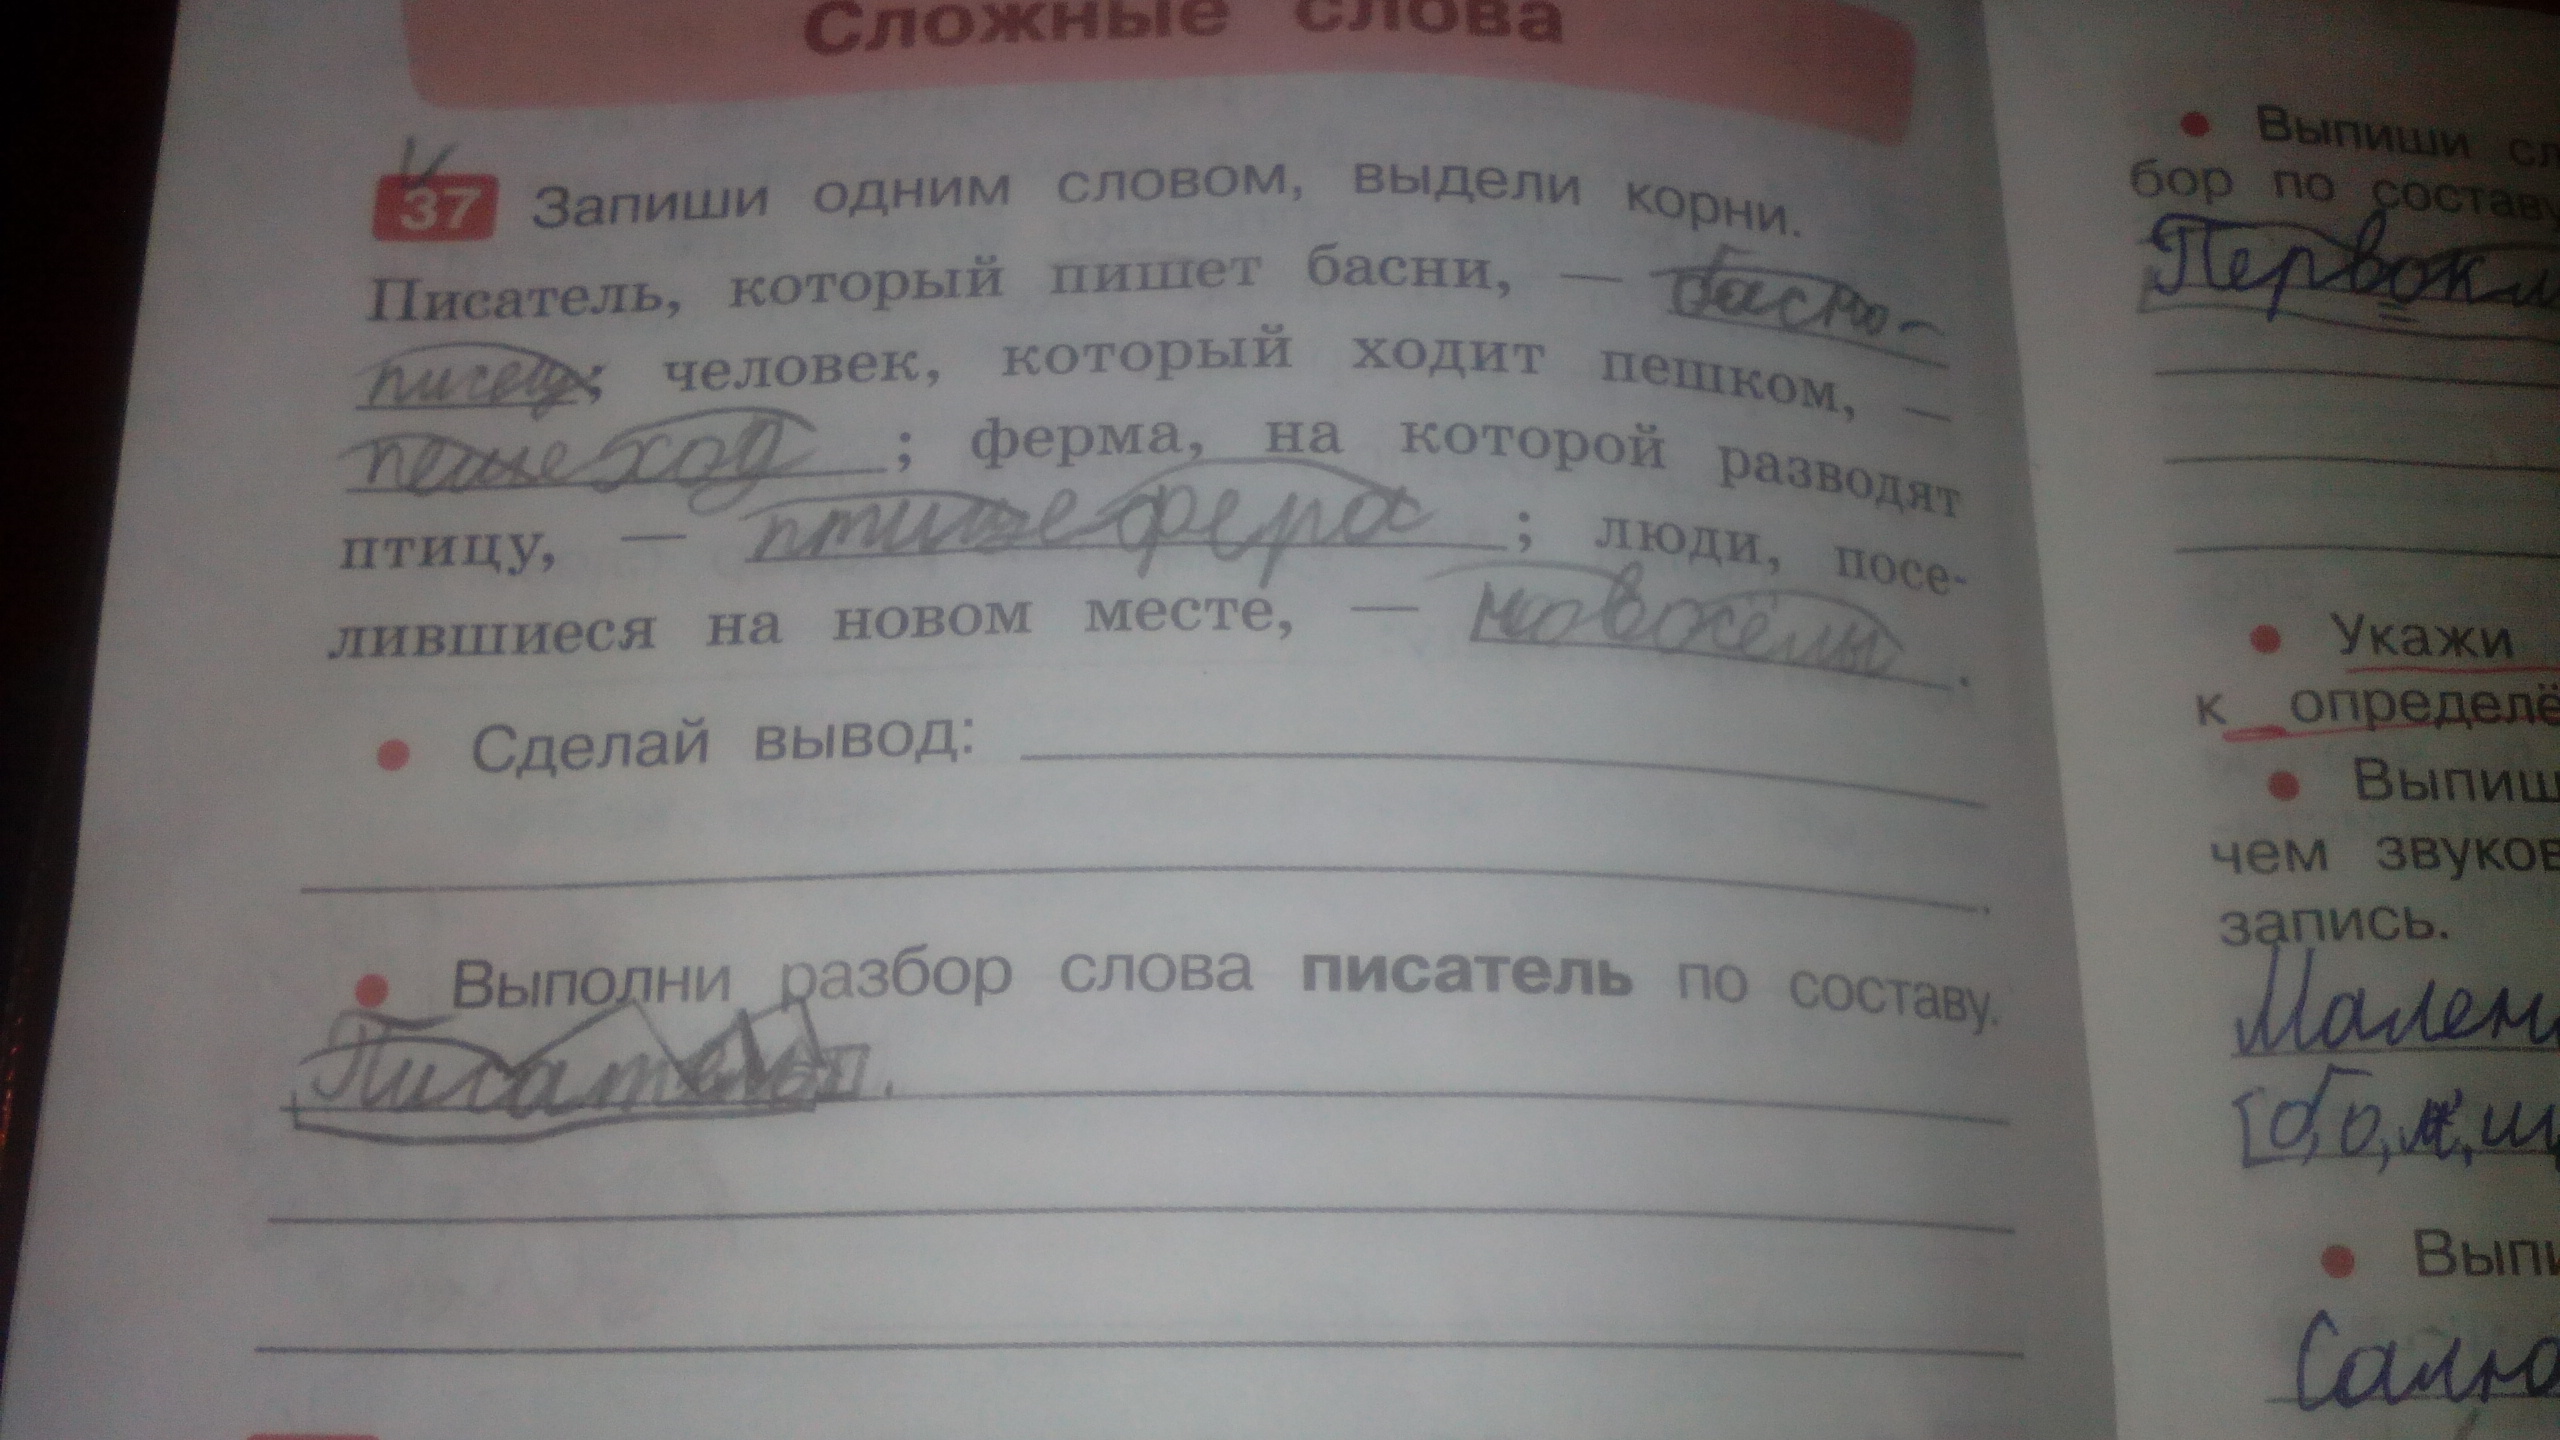 Сложные слова
37 Запиши одним словом, выдели корни.
Писатель, который пишет басни, — басно-
писец; человек, который ходит пешком, —
пешеход; ферма, на которой разводят
птицу, — птицеферма; люди, посе-
лившиеся на новом месте, — новосёлы.
• Сделай вывод:
• Выполни разбор слова писатель по составу.
Писатель
• Выпиши сл
бор по составу
Первокл
• Укажи
к определё
• Выпиш
чем звуков
запись.
Мален
• Выпи
Салю